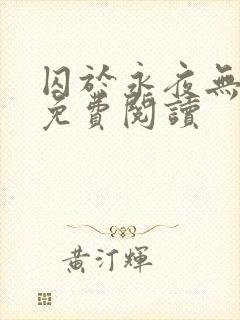 囚於永夜無
免費閱讀
黃汀輝